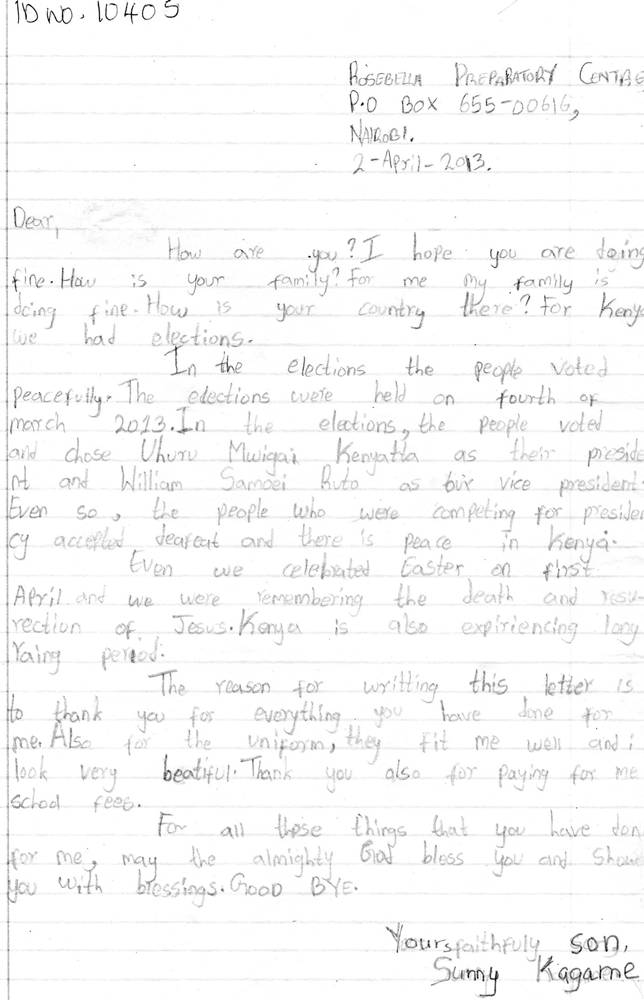 ID NO. 10405
ROSEBELLA PREPARATORY CENTRE
P.O BOX 655-00616,
NAIROBI.
2-April-2013.
Dear,
How are you? I hope you are doing
fine. How is your family? For me my family is
doing fine. How is your country there? For Kenya
we had elections.
In the elections the people voted
peacefully. The elections were held on fourth of
march 2013. In the elections, the people voted
and chose Uhuru Mwigai Kenyatta as their preside
nt and William Samoei Ruto as our vice president.
Even so, the people who were competing for presiden
cy accepted deafeat and there is peace in Kenya.
Even we celebrated Easter on first
April and we were remembering the death and resu-
rection of Jesus. Kenya is also expiriencing long
raing period.
The reason for writting this letter is
to thank you for everything you have done for
me. Also for the uniform, they fit me well and i
look very beatiful. Thank you also for paying for me
school fees.
For all these things that you have don
for me, may the almighty God bless you and show
you with blessings. GOOD BYE.
Yours faithfuly son,
Sunny Kagame